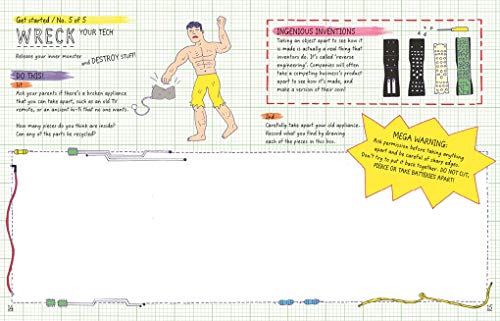 Get started / No. 5 of 5
WRECK YOUR TECH
Release your inner monster
and DESTROY STUFF!
DO THIS!
1st
Ask your parents if there's a broken appliance
that you can take apart, such as an old TV
remote, or an ancient hi-fi that no one wants.
How many pieces do you think are inside?
Can any of the parts be recycled?
INGENIOUS INVENTIONS
Taking an object apart to see how it
is made is actually a real thing that
inventors do. It's called 'reverse
engineering'. Companies will often
take a competing business's product
apart to see how it's made, and
make a version of their own!
2nd
Carefully take apart your old appliance.
Record what you find by drawing
each of the pieces in this box.
MEGA WARNING:
Ask permission before taking anything
apart and be careful of sharp edges.
Don't try to put it back together. DO NOT CUT,
PIERCE OR TAKE BATTERIES APART!